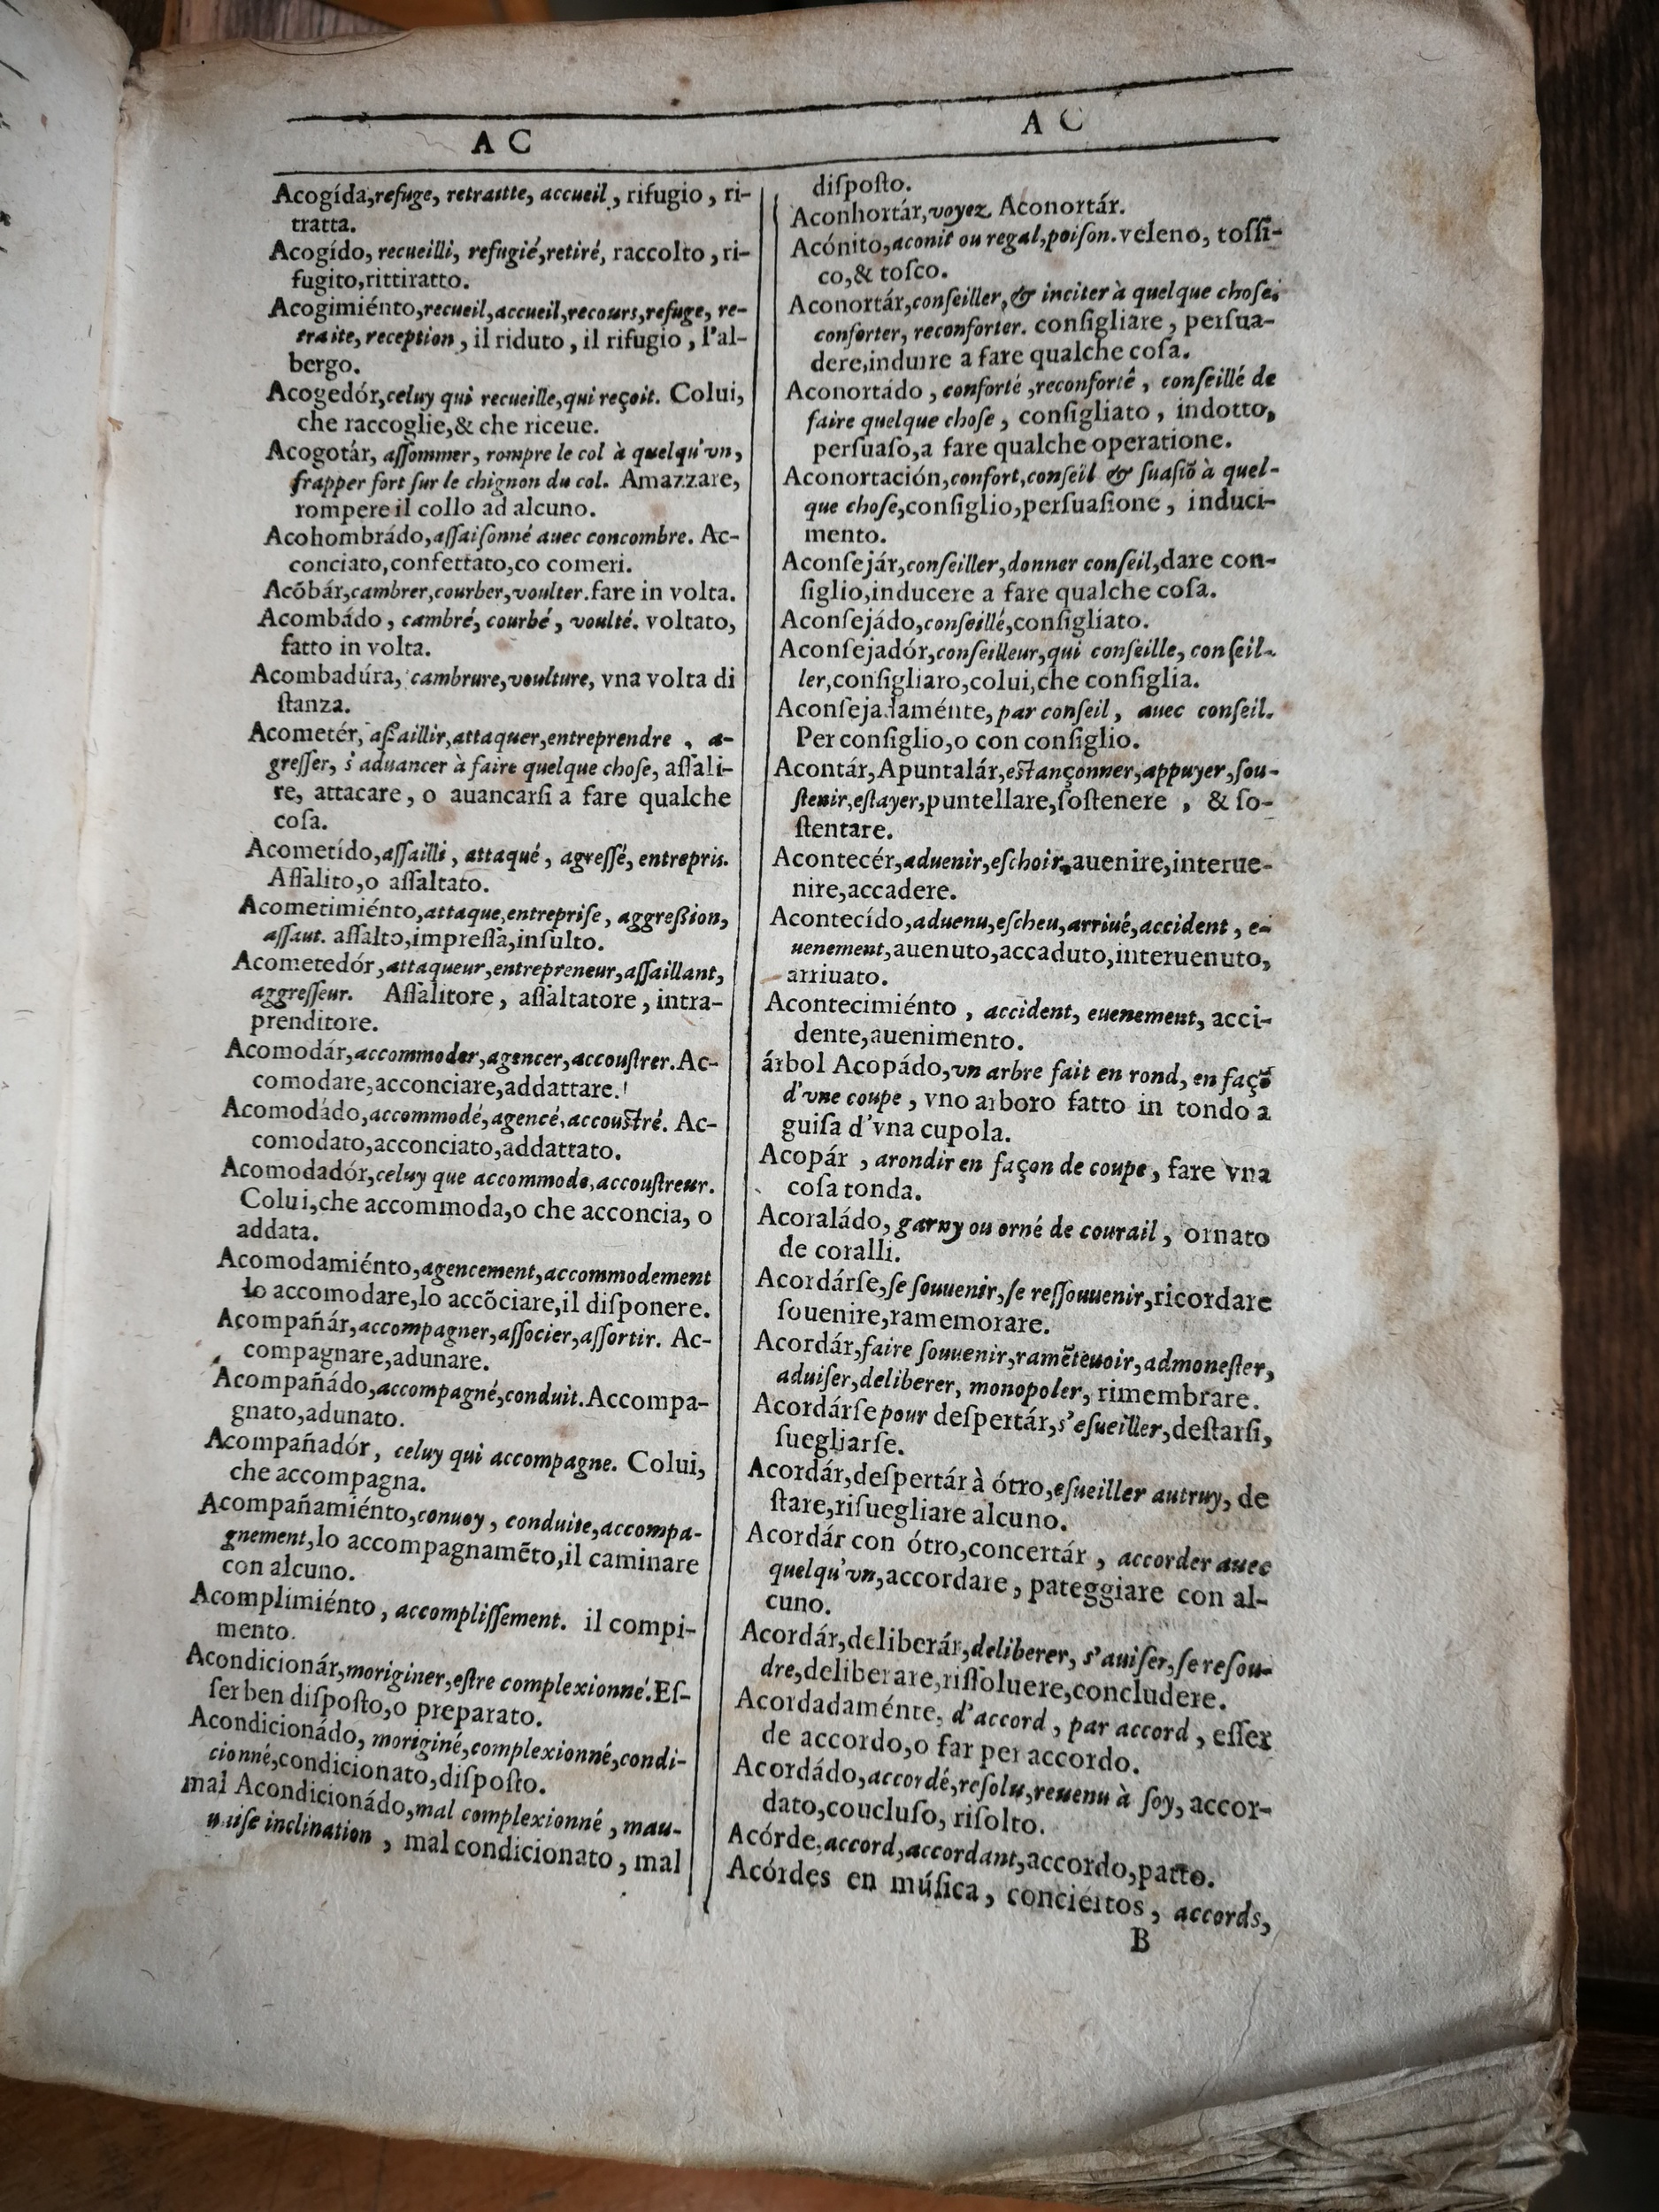 A C
Acogída,refuge, retraitte, accueil, rifugio, ri-
tratta.
Acogído, recueilli, refugié,retiré, raccolto, ri-
fugito,rittiratto.
Acogimiénto,recueil,accueil,recours,refuge, re-
traite, reception, il riduto, il rifugio, l'al-
bergo.
Acogedór,celuy qui recueille,qui reçoit. Colui,
che raccoglie,& che riceue.
Acogotár, aſſommer, rompre le col à quelqu'vn,
frapper fort ſur le chignon du col. Amazzare,
rompere il collo ad alcuno.
Acohombrádo,aſſaiſonné auec concombre. Ac-
conciato,confettato,co comeri.
Acõbár,cambrer,courber,voulter.fare in volta.
Acombádo, cambré, courbé, voulté. voltato,
fatto in volta.
Acombadúra, cambrure,voulture, vna volta di
ſtanza.
Acometér, aſſaillir,attaquer,entreprendre, a-
greſſer, s'aduancer à faire quelque choſe, aſſali-
re, attacare, o auancarſi a fare qualche
coſa.
Acometído,aſſailli, attaqué, agreſſé, entrepris.
Aſſalito,o aſſaltato.
Acometimiénto,attaque,entrepriſe, aggreßion,
aſſaut. aſſalto,impreſſa,inſulto.
Acometedór,attaqueur,entrepreneur,aſſaillant,
aggreſſeur. Aſſalitore, aſſaltatore, intra-
prenditore.
Acomodár,accommoder,agencer,accouſtrer.Ac-
comodare,acconciare,addattare.
Acomodádo,accommodé,agencé,accouſtré. Ac-
comodato,acconciato,addattato.
Acomodadór,celuy que accommode,accouſtreur.
Colui,che accommoda,o che acconcia, o
addata.
Acomodamiénto,agencement,accommodement
lo accomodare,lo accõciare,il diſponere.
Acompañár,accompagner,aſſocier,aſſortir. Ac-
compagnare,adunare.
Acompañádo,accompagné,conduit.Accompa-
gnato,adunato.
Acompañadór, celuy qui accompagne. Colui,
che accompagna.
Acompañamiénto,conuoy, conduite,accompa-
gnement,lo accompagnamẽto,il caminare
con alcuno.
Acomplimiénto, accompliſſement. il compi-
mento.
Acondicionár,moriginer,eſtre complexionné.Eſ-
ſer ben diſpoſto,o preparato.
Acondicionádo, moriginé,complexionné,condi-
cionné,condicionato,diſpoſto.
mal Acondicionádo,mal complexionné, mau-
uaiſe inclination, mal condicionato, mal
A C
diſpoſto.
Aconhortár,voyez Aconortár.
Acónito,aconit ou regal,poiſon.veleno, toſſi-
co,& toſco.
Aconortár,conſeiller,& inciter à quelque choſe,
conforter, reconforter. conſigliare, perſua-
dere,indurre a fare qualche coſa.
Aconortádo, conforté,reconforté, conſeillé de
faire quelque choſe, conſigliato, indotto,
perſuaſo,a fare qualche operatione.
Aconortación,confort,conſeil & ſuaſiõ à quel-
que choſe,conſiglio,perſuaſione, induci-
mento.
Aconſejár,conſeiller,donner conſeil,dare con-
ſiglio,inducere a fare qualche coſa.
Aconſejádo,conſeillé,conſigliato.
Aconſejadór,conſeilleur,qui conſeille, conſeil-
ler,conſigliaro,colui,che conſiglia.
Aconſejadaménte,par conſeil, auec conſeil.
Per conſiglio,o con conſiglio.
Acontár,Apuntalár,eſtançonner,appuyer,ſou-
ſtenir,eſtayer,puntellare,ſoſtenere, & ſo-
ſtentare.
Acontecér,aduenir,eſchoir,auenire,interue-
nire,accadere.
Acontecído,aduenu,eſcheu,arriué,accident, e-
uenement,auenuto,accaduto,interuenuto,
arriuato.
Acontecimiénto, accident, euenement, acci-
dente,auenimento.
árbol Acopádo,vn arbre fait en rond, en façõ
d'vne coupe, vno arboro fatto in tondo a
guiſa d'vna cupola.
Acopár, arondir en façon de coupe, fare vna
coſa tonda.
Acoraládo, garny ou orné de courail, ornato
de coralli.
Acordárſe,ſe ſouuenir,ſe reſſouuenir,ricordare
ſouenire,ramemorare.
Acordár,faire ſouuenir,ramẽteuoir,admoneſter,
aduiſer,deliberer, monopoler, rimembrare.
Acordárſe pour deſpertár,s'eſueiller,deſtarſi,
ſuegliarſe.
Acordár,deſpertár à ótro,eſueiller autruy, de
ſtare,riſuegliare alcuno.
Acordár con ótro,concertár, accorder auec
quelqu'vn,accordare, pateggiare con al-
cuno.
Acordár,deliberár,deliberer, s'auiſer,ſe reſou-
dre,deliberare,riſſoluere,concludere.
Acordadaménte, d'accord, par accord, eſſer
de accordo,o far per accordo.
Acordádo,accordé,reſolu,reuenu à ſoy, accor-
dato,coucluſo, riſolto.
Acórde,accord,accordant,accordo,patto.
Acórdes en múſica, conciertos, accords,
B